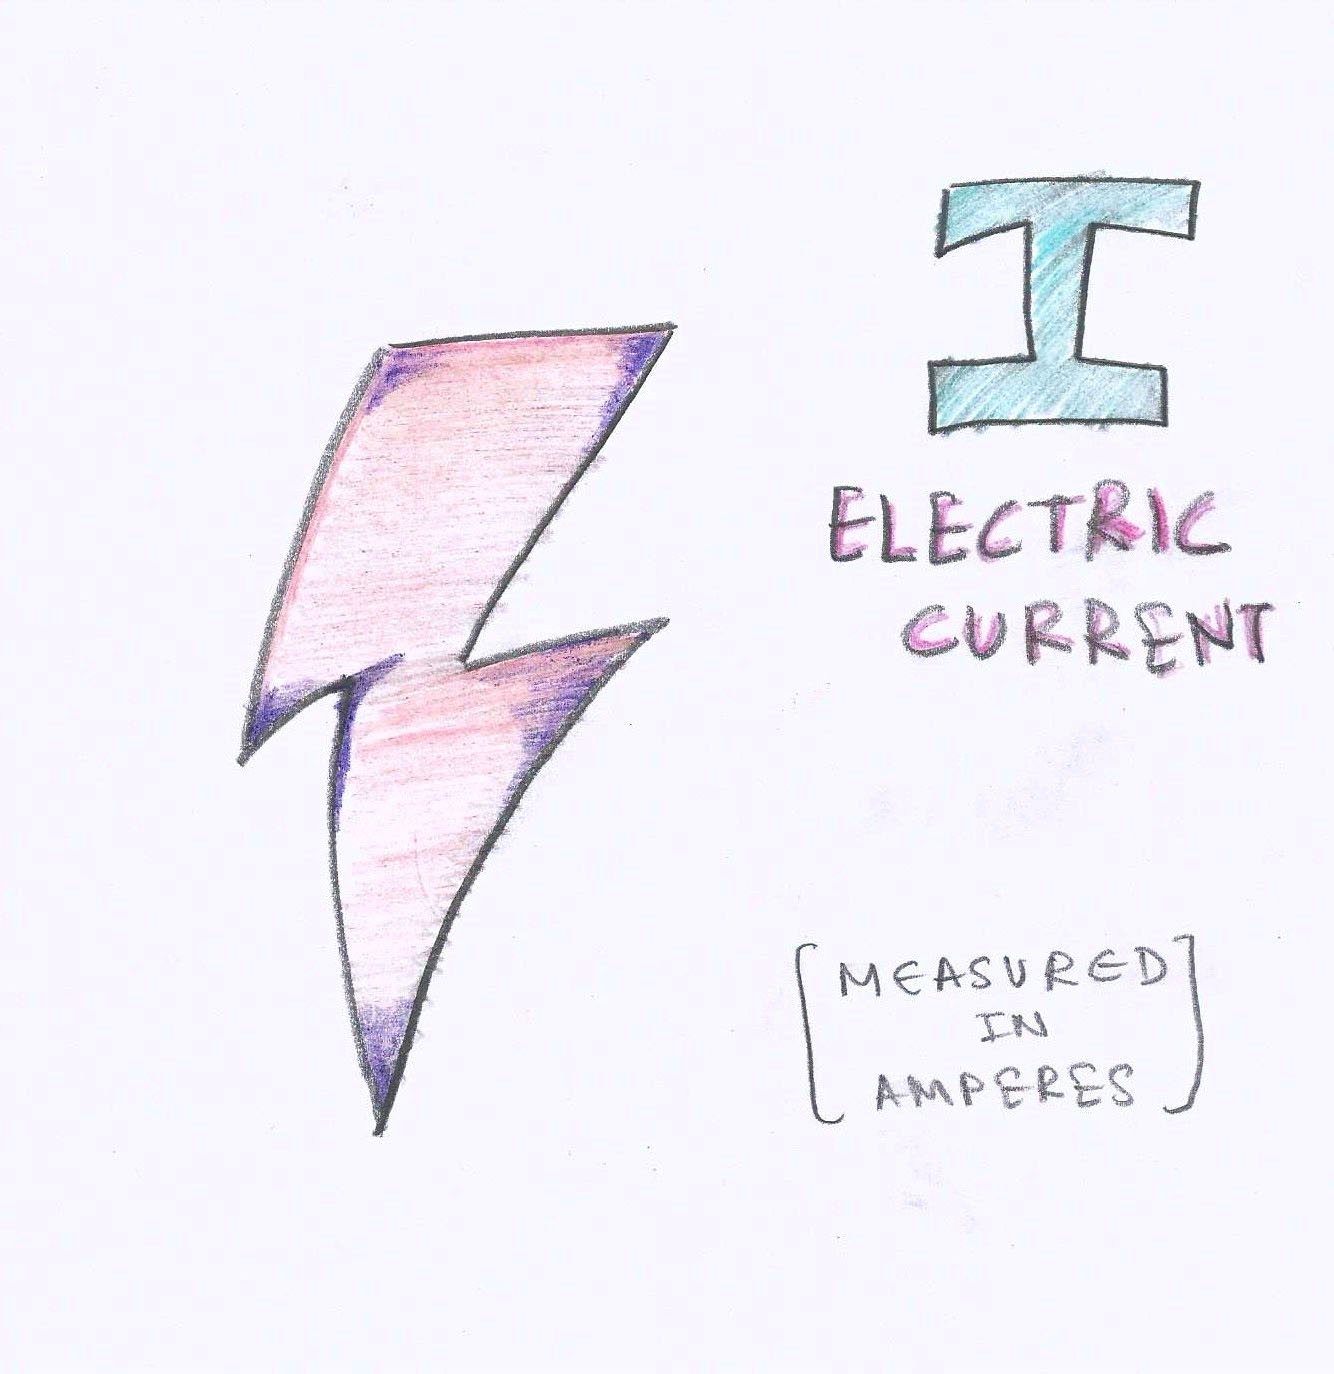 I
ELECTRIC
CURRENT
[MEASURED
IN
AMPERES]